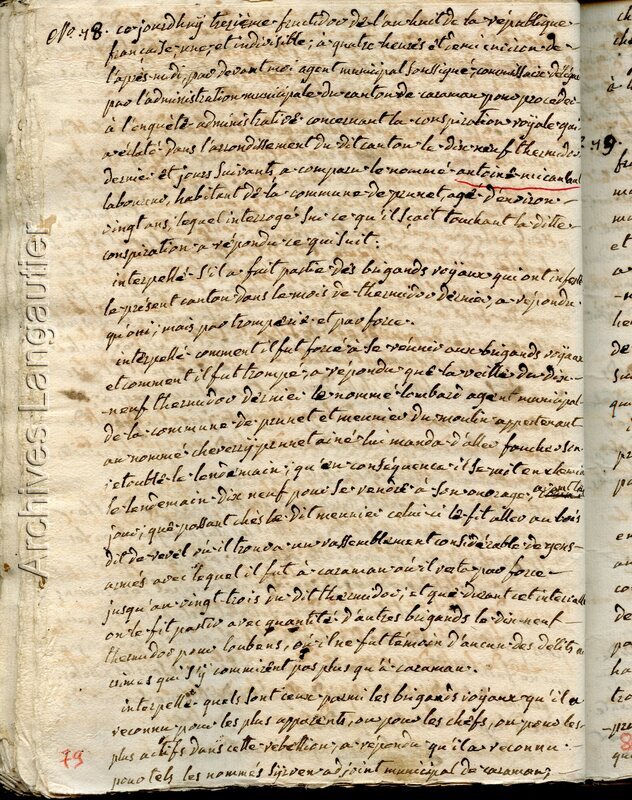 N°. 78. cejourdhuy tresième fructidor de l'an huit de la république
francaise une et indivisible; à quatre heures et demi environ de
l'après midi, par devant moi agent municipal soussigné, commissaire délégué
par l'administration municipale du canton de caraman pour proceder
à l'enquête administrative concernant la conspiration royale qui
a éclaté dans l'arrondissement du dit canton le dix neuf thermidor
dernier et jours suivants, a comparu le nommé antoine
laboureur, habitant de la commune de prunet, agé d'environ
vingt ans, lequel interrogé sur ce qu'il scait touchant la ditte
conspiration a répondu ce qui suit.
interpellé s'il a fait partie des brigands royaux qui ont infesté
le présent canton dans le mois de thermidor dernier, a répondu
qu'oui; mais par tromperie et par force.
interpellé comment il fut forcé à se réunir aux brigands royaux
et comment il fut trompé a répondu que la veille du dix
neuf thermidor dernier le nommé lombard agent municipal
de la commune de prunet et meunier du moulin appartenant
au nommé cheverry prunet ainé lui manda d'aller faucher son
etouble le lendemain; qu'en conséquence il se mit en chemin
le lendemain dix neuf pour se rendre à son ouvrage,
jour, que passant chès le dit meunier celui-ci le fit aller au bois
dit de revel où il trouva un rassemblement considérable de gens
armés avec lequel il fut à caraman où il resta par force
jusqu'au vingt trois du dit thermidor; et que durant cet intervalle
on le fit partir avec quantité d'autres brigands le dix neuf
thermidor pour loubens, où il ne fut témoin d'aucun des délits ou
crimes qui s'y commirent pas plus qu'à caraman.
interpellé quels sont ceux parmi les brigands royaux qu'il a
reconnu pour les plus apparents, ou pour les chefs, ou pour les
plus actifs dans cette rebellion, a répondu qu'il a reconnu
pour tels les nommés adjoint municipal de caraman;
79
79
Archives Langautier